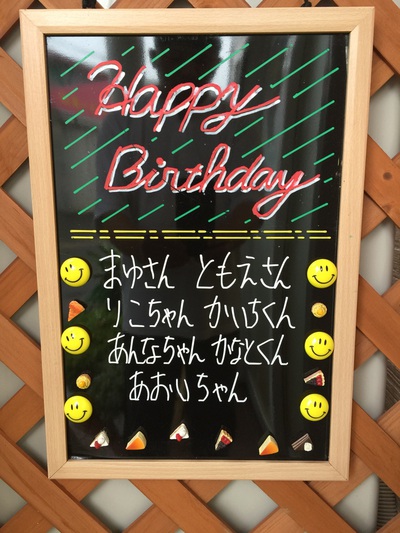 Happy
Birthday
まゆさん ともえさん
りこちゃん かいちくん
あんなちゃん かなとくん
あおいちゃん